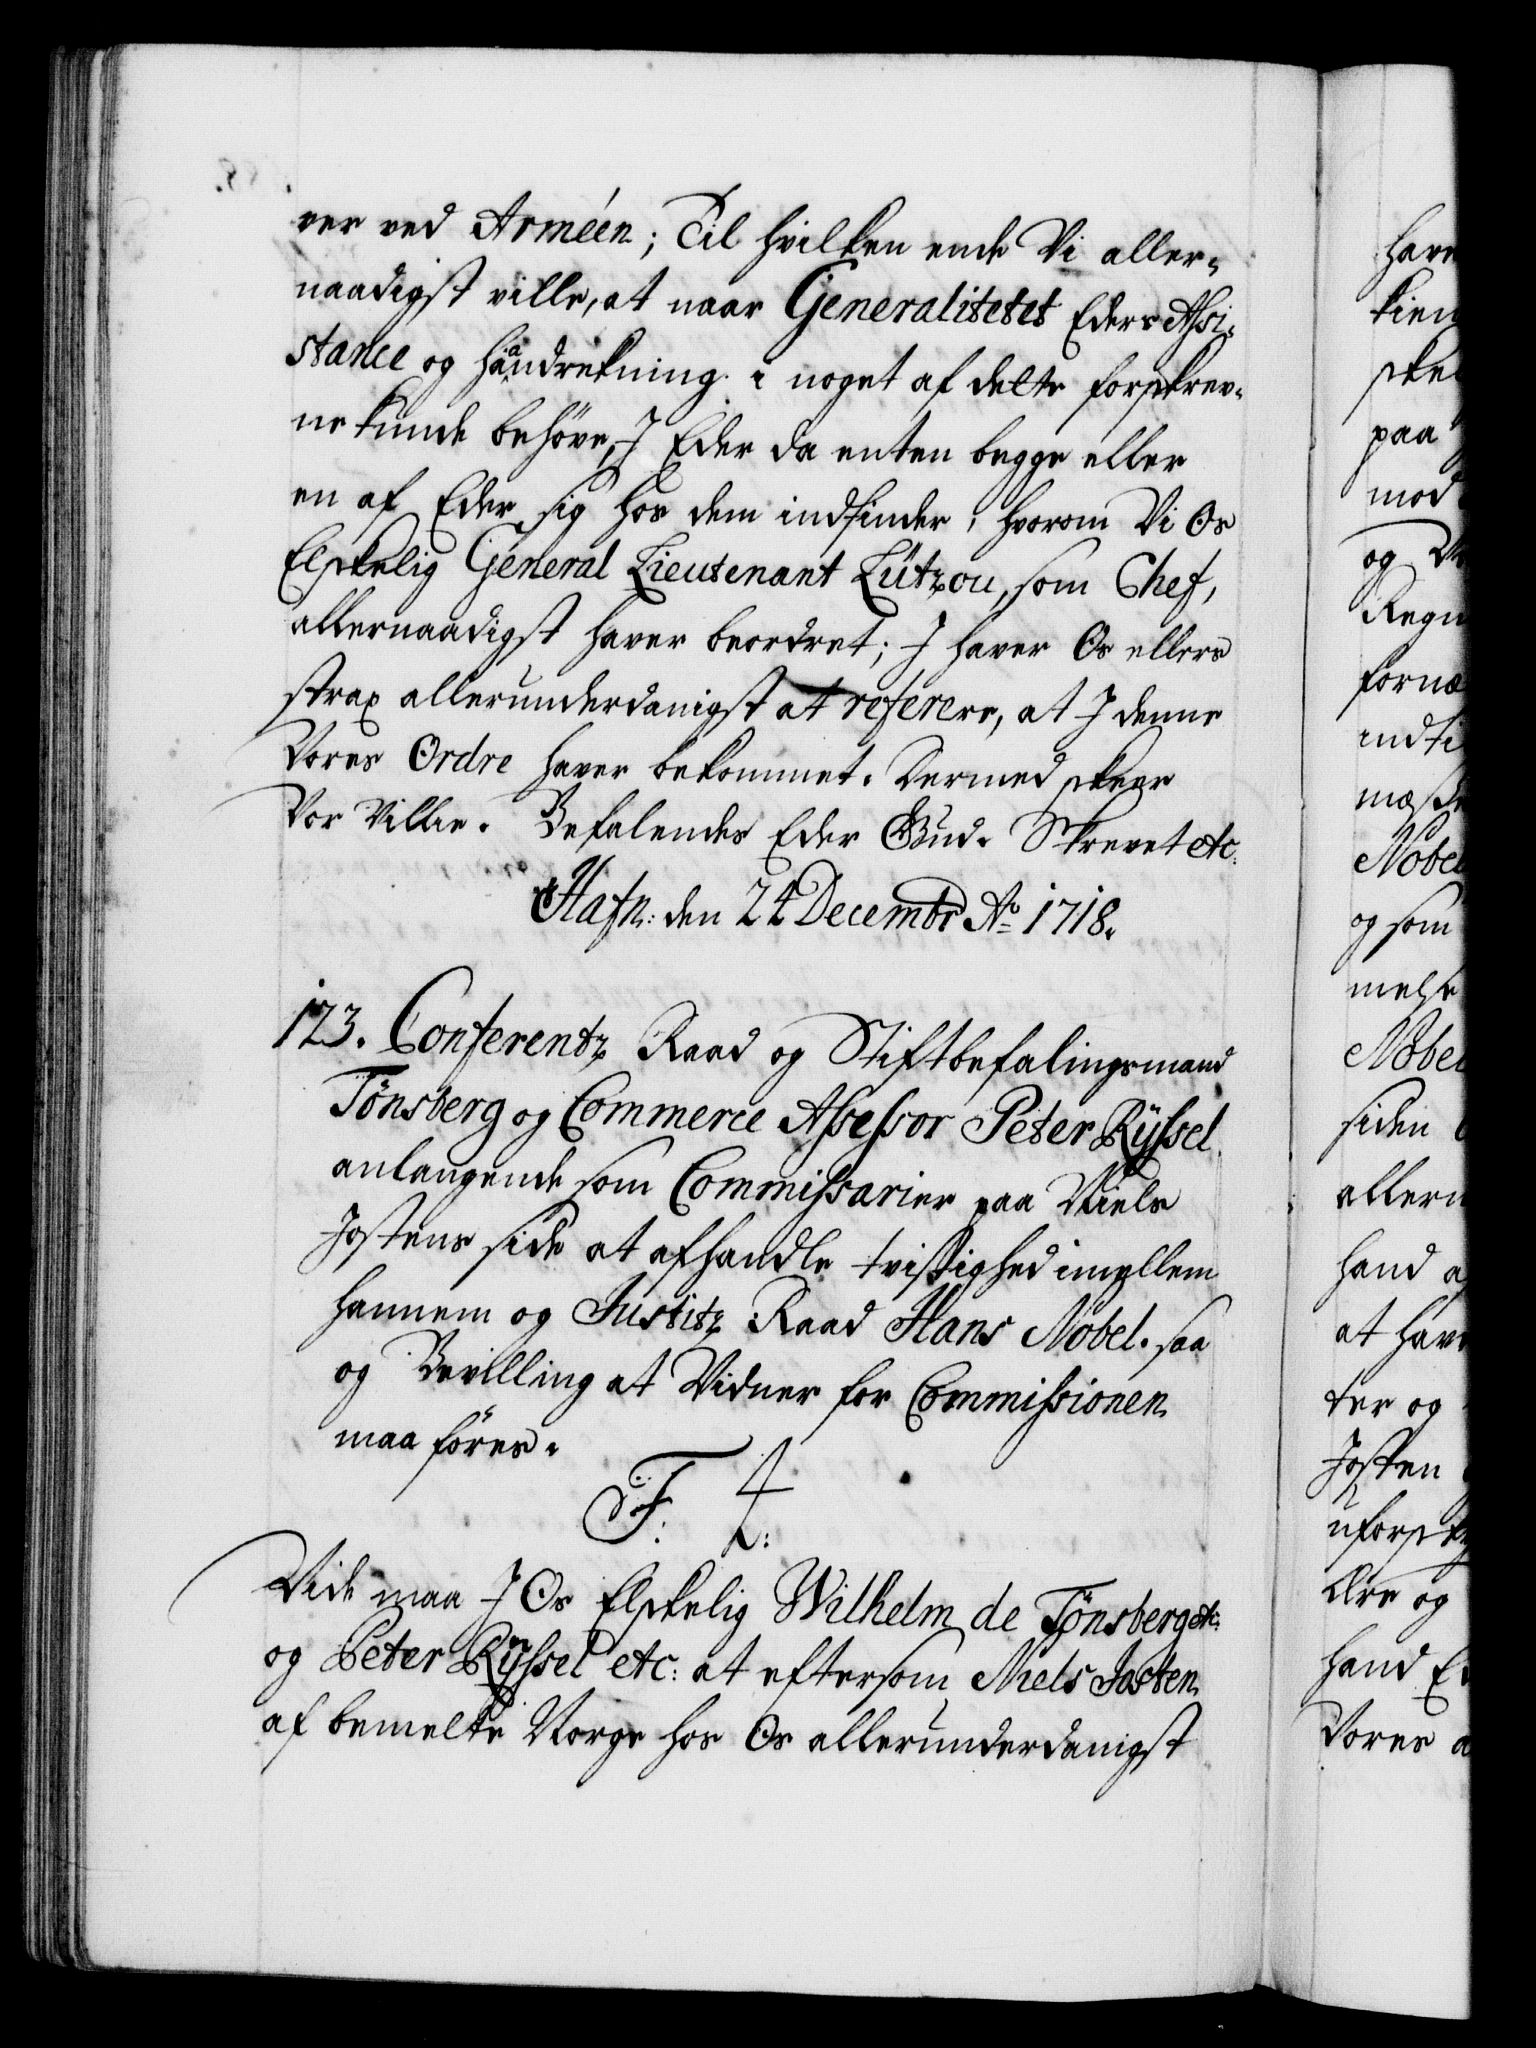 ver ved Arméen; Til hvilken ende Vi aller-
naadigst ville, at naar Generalitetet Eders Assi-
stance og haandrekning i noget af dette forskrev-
ne kunde behöve, I Eder da enten begge eller
en af Eder sig hos dem indfinder, hvorom Vi Os
Elskelig General Lieutenant Lützou, som Chef,
allernaadigst haver beordret; I haver Os ellers
strax allerunderdanigst at referere, at I denne
Vores Ordre haver bekommet. Dermed skeer
Vor Villie. Befalendes Eder Gud. Skrevet etc:
Hafn: den 24 Decembr Ao 1718.
123. Conferentz Raad og Stiftbefalingsmand
Tönsberg og Commerce Assessor Peter Ryssel
anlangende som Commissarier paa Niels
Jostens side at afhandle tvistighed imellem
hannem og Justitz Raad Hans Nobel. saa
og Bevilling at Vidner for Commissionen
maa föres.
F. 4
Vide maa I Os Elskelig Wilhelm de Tönsberg etc:
og Peter Ryssel etc: at eftersom Niels Josten
af bemelte Norge hos Os allerunderdanigst
paa
mod
og
Nobel
og som
Nobel
siden
hand
at
ter og
Josten
Ære og
hand
Vores